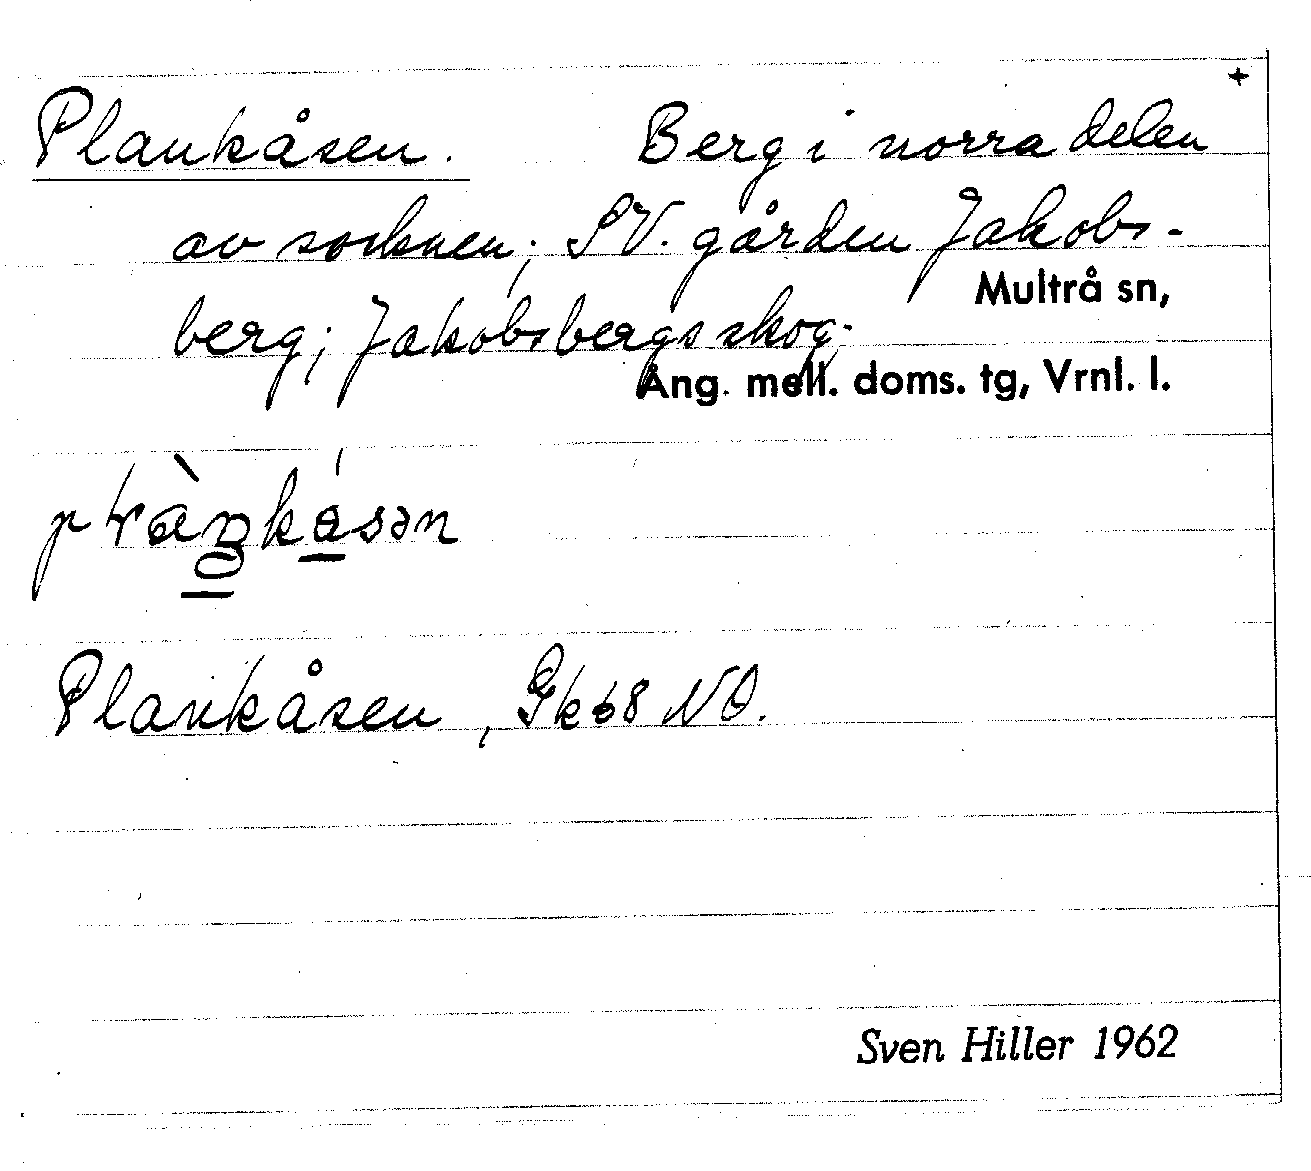 +
Plankåsen. Berg i norra delen
av socknen; SV. gården Jakobs-
Multrå sn,
berg; Jakobsbergsskog.
Ång. mell. doms. tg, Vrnl. l.
Plankåsen, Gk 68 NO.
Sven Hiller 1962